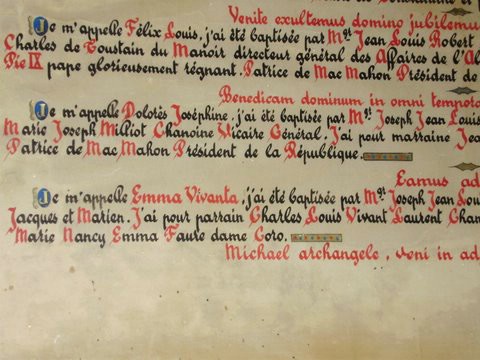 Venite exultemus domino jubilemus
Je m'appelle Félix Louis, j'ai été baptisée par Mgr Jean Louis Robert
Charles de Toustain du Manoir directeur général des Affaires de l'Al
Pie IX pape glorieusement régnant. Patrice de Mac Mahon Président de
Benedicam dominum in omni tempore
Je m'appelle Dolorès Joséphine, j'ai été baptisée par Mgr Joseph Jean Louis
Marie Joseph Milliot Chanoine Vicaire Général. J'ai pour marraine Jea
Patrice de Mac Mahon Président de la République.
Eamus ad
Je m'appelle Emma Vivanta, j'ai été baptisée par Mgr Joseph Jean Lou
Jacques et Marien. J'ai pour parrain Charles Louis Vivant Laurent Chan
Marie Nancy Emma Faure dame Coro.
Michael archangele, veni in ad